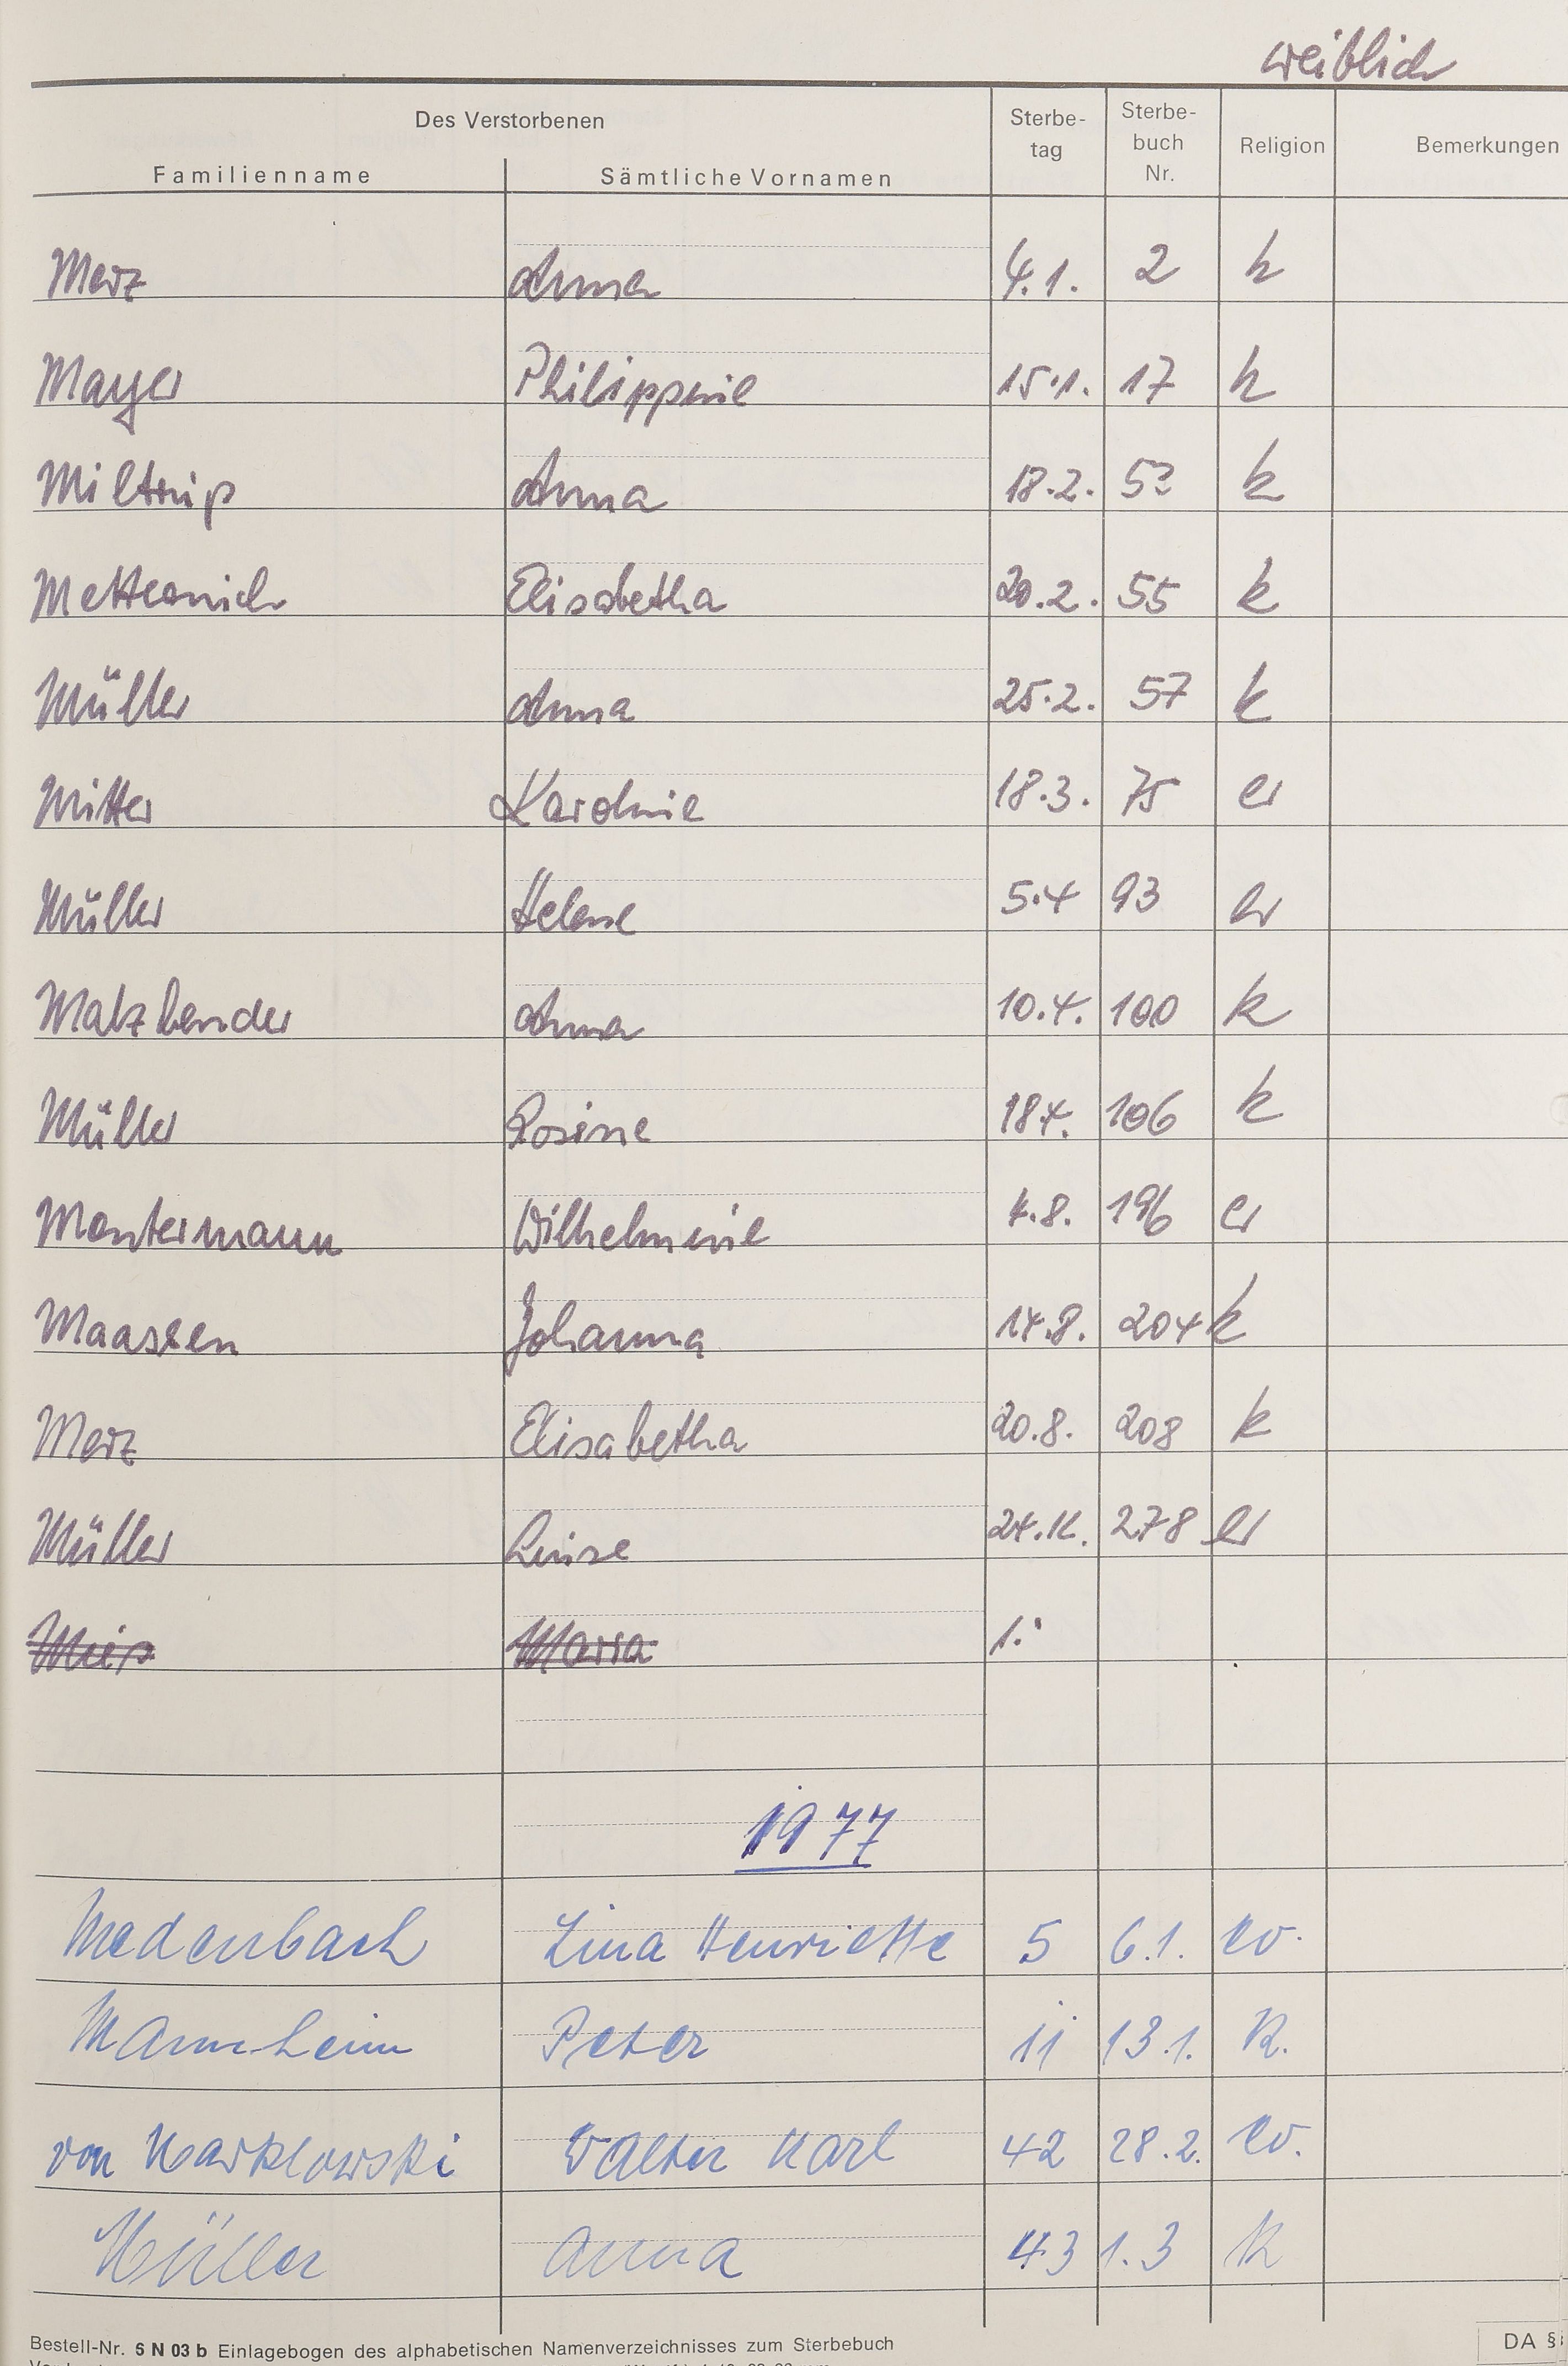 weiblich
Des Verstorbenen
Familienname Sämtliche Vornamen Sterbe- tag Sterbe- buch Nr. Religion Bemerkungen
Merz Anna 4.1. 2 k
Mayer Philippine 15.1. 17 k
Miltrup Anna 18.2. 52 k
Metternich Elisabetha 20.2. 55 k
Müller Anna 25.2. 57 k
Mitter Karoline 18.3. 75 ev
Müller Helene 5.4 93 ev
Malzbender Anna 10.4. 100 k
Müller Rosine 18.4. 106 k
Montermann Wilhelmine 4.8. 196 ev
Maassen Johanna 14.8. 204 k
Merz Elisabetha 20.8. 208 k
Müller Luise 24.12. 278 ev
Maria 1.
1977
Medenbach Lina Henriette 5 6.1. ev.
Mannheim Peter 11 13.1. k.
von Marklowski Walter Karl 42 28.2. ev.
Müller Anna 43 1.3 k
Bestell-Nr. 5 N 03 b Einlagebogen des alphabetischen Namenverzeichnisses zum Sterbebuch
DA §